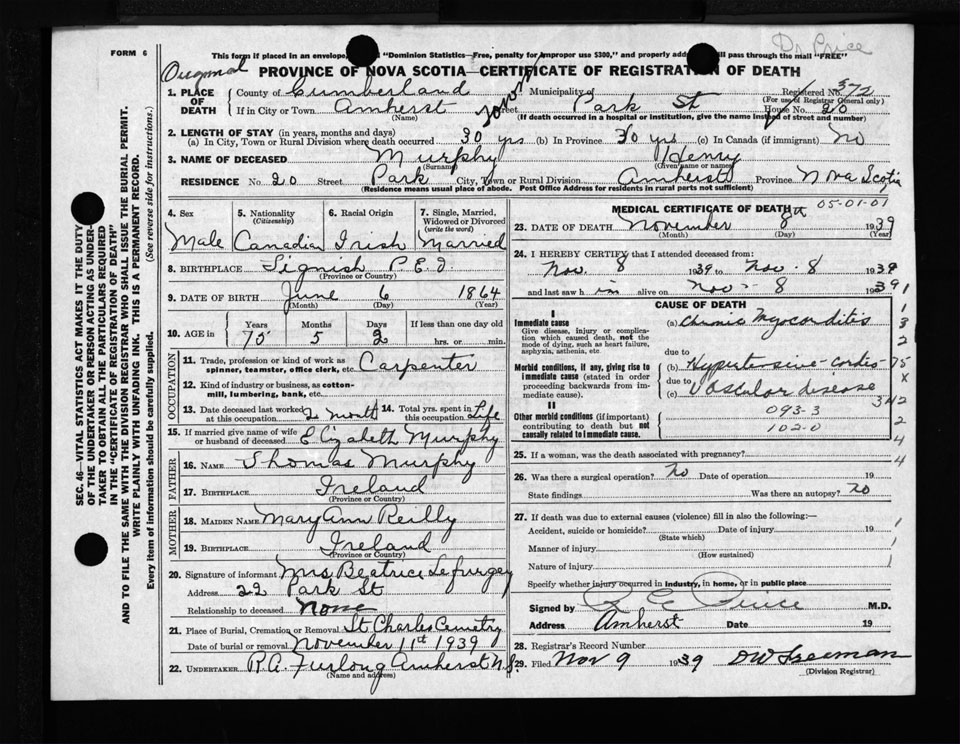 Dr Price
FORM 6
This form if placed in an envelope, "Dominion Statistics—Free, penalty for improper use $300," and properly addr pass through the mail "FREE"
Original
PROVINCE OF NOVA SCOTIA—CERTIFICATE OF REGISTRATION OF DEATH
1. PLACE OF DEATH County of Cumberland Municipality of Registered No. 372
(For use of Registrar General only)
If in City or Town Amherst Street Park St House No. 20
(Name) (If death occurred in a hospital or institution, give the name instead of street and number)
2. LENGTH OF STAY (in years, months and days)
(a) In City, Town or Rural Division where death occurred 30 yrs (b) In Province 30 yrs (c) In Canada (if immigrant) No
3. NAME OF DECEASED Murphy Henry
(Surname) (Given name or names)
RESIDENCE No. 20 Street Park City, Town or Rural Division Amherst Province Nova Scotia
(Residence means usual place of abode. Post Office Address for residents in rural parts not sufficient)
4. Sex 5. Nationality (Citizenship) 6. Racial Origin 7. Single, Married, Widowed or Divorced (write the word)
Male Canadian Irish Married
8. BIRTHPLACE Tignish P.E.I.
(Province or Country)
9. DATE OF BIRTH June 6 1864
(Month) (Day) (Year)
10. AGE in Years Months Days If less than one day old
75 5 2 hrs. or min.
OCCUPATION
11. Trade, profession or kind of work as spinner, teamster, office clerk, etc. Carpenter
12. Kind of industry or business, as cotton-mill, lumbering, bank, etc.
13. Date deceased last worked at this occupation 2 month 14. Total yrs. spent in this occupation Life
15. If married give name of wife or husband of deceased Elizabeth Murphy
FATHER
16. NAME Thomas Murphy
17. BIRTHPLACE Ireland
(Province or Country)
MOTHER
18. MAIDEN NAME Mary Ann Reilly
19. BIRTHPLACE Ireland
(Province or Country)
20. Signature of informant Mrs Beatrice Lefurgey
Address 22 Park St
Relationship to deceased None
21. Place of Burial, Cremation or Removal St Charles Cemetry
Date of burial or removal November 11th 1939
22. UNDERTAKER R.A. Furlong Amherst N.S.
(Name and address)
MEDICAL CERTIFICATE OF DEATH 05-01-01
23. DATE OF DEATH November 8th 1939
(Month) (Day) (Year)
24. I HEREBY CERTIFY that I attended deceased from:
Nov. 8 1939 to Nov. 8 1939
and last saw him alive on Nov - 8 1939
CAUSE OF DEATH
I
Immediate cause (a) Chronic Myocorditis
Give disease, injury or complication which caused death, not the mode of dying, such as heart failure, asphyxia, asthenia, etc.
due to
Morbid conditions, if any, giving rise to immediate cause (stated in order proceeding backwards from immediate cause).
(b) Hypertensive-cardio-
due to
(c) Vascular disease
II
Other morbid conditions (if important) contributing to death but not causally related to immediate cause.
093-3
102-0
25. If a woman, was the death associated with pregnancy?
26. Was there a surgical operation? No Date of operation 19
State findings Was there an autopsy? No
27. If death was due to external causes (violence) fill in also the following:—
Accident, suicide or homicide? Date of injury 19
(State which)
Manner of injury
(How sustained)
Nature of injury
Specify whether injury occurred in industry, in home, or in public place
Signed by R E Price M.D.
Address Amherst Date 19
28. Registrar's Record Number
29. Filed Nov 9 1939 DW Freeman
(Division Registrar)
SEC. 46—VITAL STATISTICS ACT MAKES IT THE DUTY
OF THE UNDERTAKER OR PERSON ACTING AS UNDER-
TAKER TO OBTAIN ALL THE PARTICULARS REQUIRED
IN THE "CERTIFICATE OF REGISTRATION OF DEATH"
AND TO FILE THE SAME WITH THE DIVISION REGISTRAR WHO SHALL ISSUE THE BURIAL PERMIT.
WRITE PLAINLY WITH UNFADING INK. THIS IS A PERMANENT RECORD.
Every item of information should be carefully supplied. (See reverse side for instructions.)